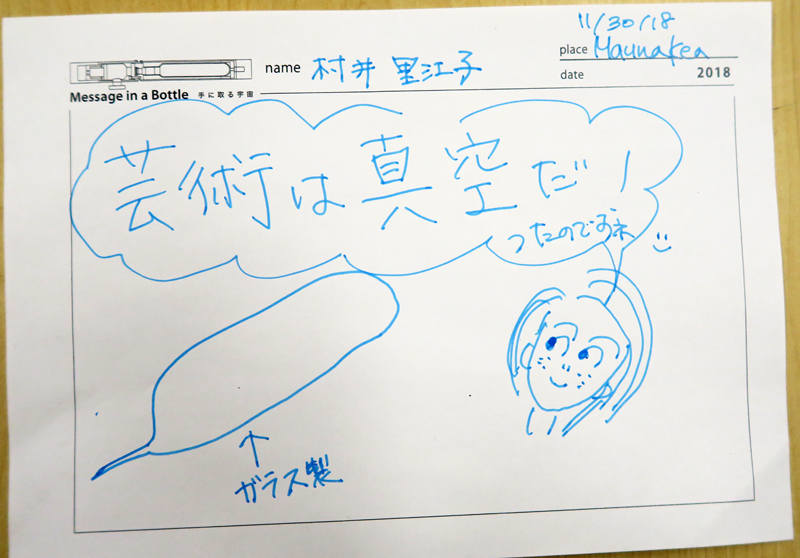 11/30/18
name 村井里江子
place Maunakea
date 2018
Message in a Bottle 手に取る宇宙
芸術は真空だ!
ったのですネ
ガラス製